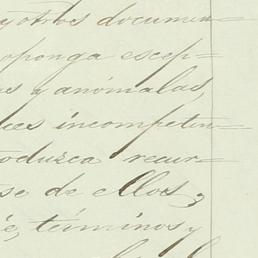 y otros documen=
oponga escep=
as y anómalas,
ces incompeten=
oduzca recur=
se de ellos,
é, términos y